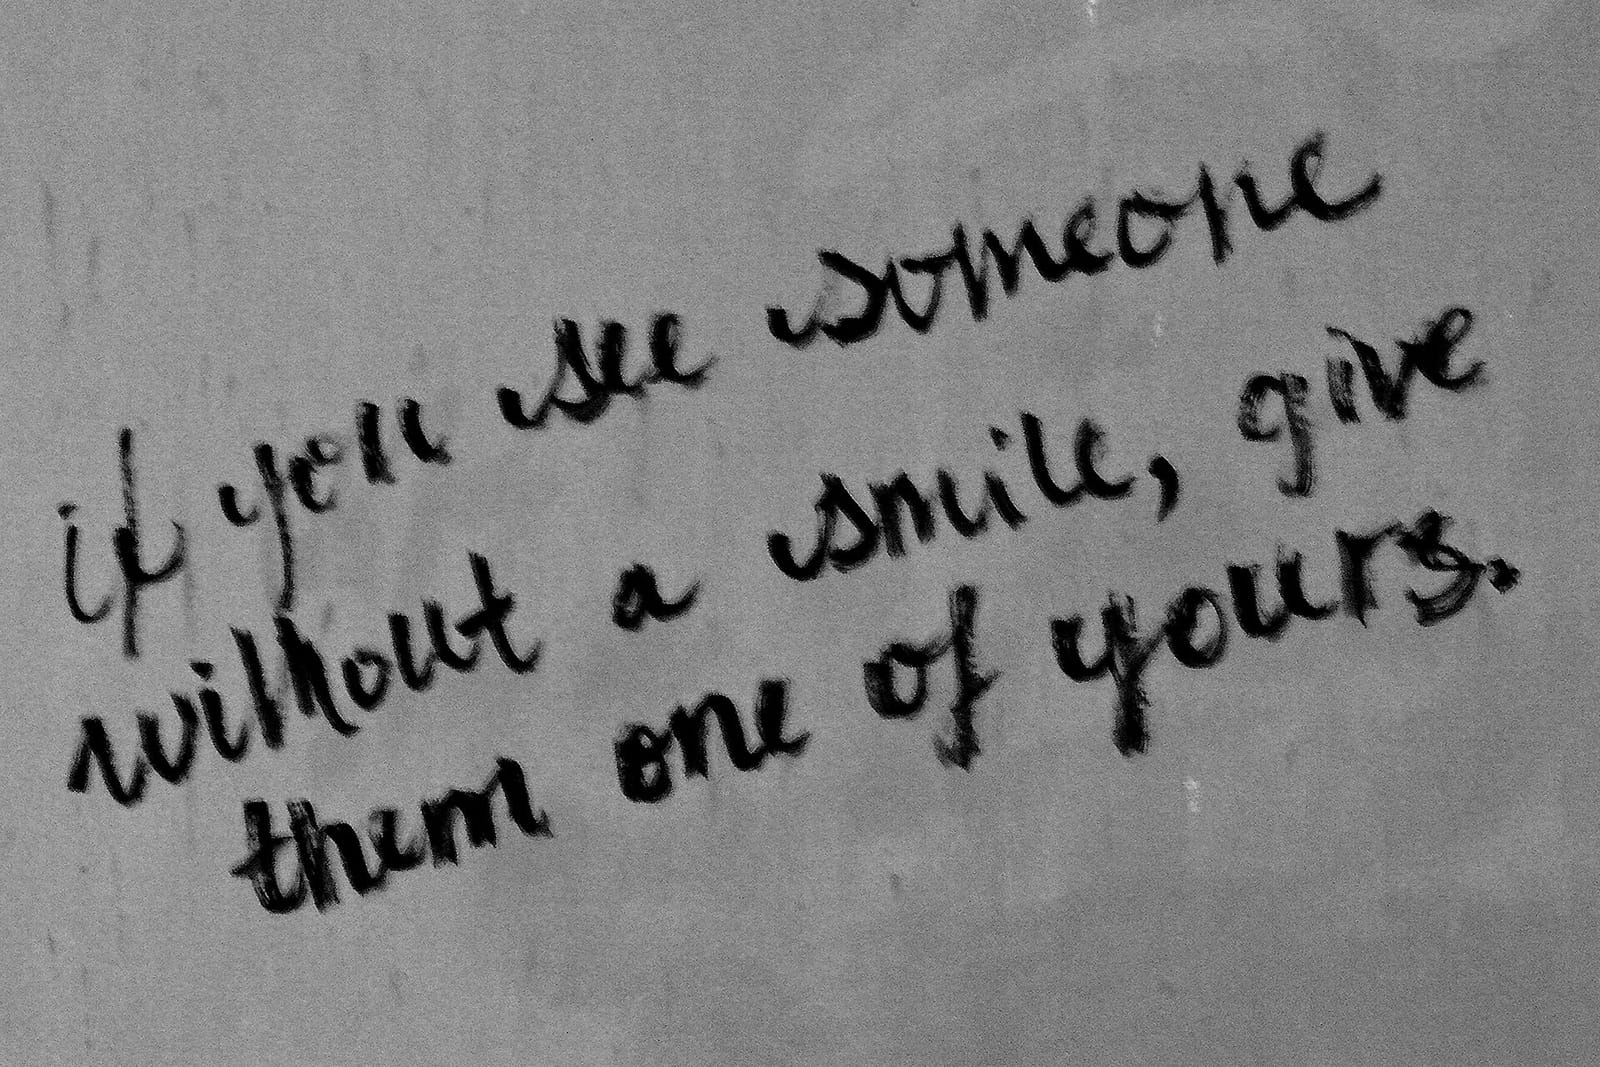 if you see someone
without a smile, give
them one of yours.